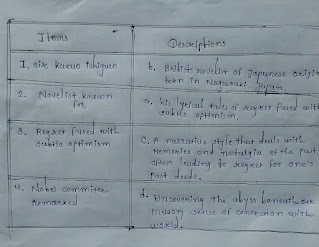 Items
Descriptions
1. Sir Kazuo Ishiguro
b. British novelist of Japanese origin
born in Nagasaki
Japan
2. Novelist known
for
a. his lyrical tales of regret fused with
subtle optimism.
3. Regret fused with
subtle optimism
C. A narrative style that deals with
memories and nostalgia of the past,
often leading to regret for one's
past deeds.
4. Nobel committee
remarked
d. Uncovering the abyss beneath our
illusory sense of connection with
world.